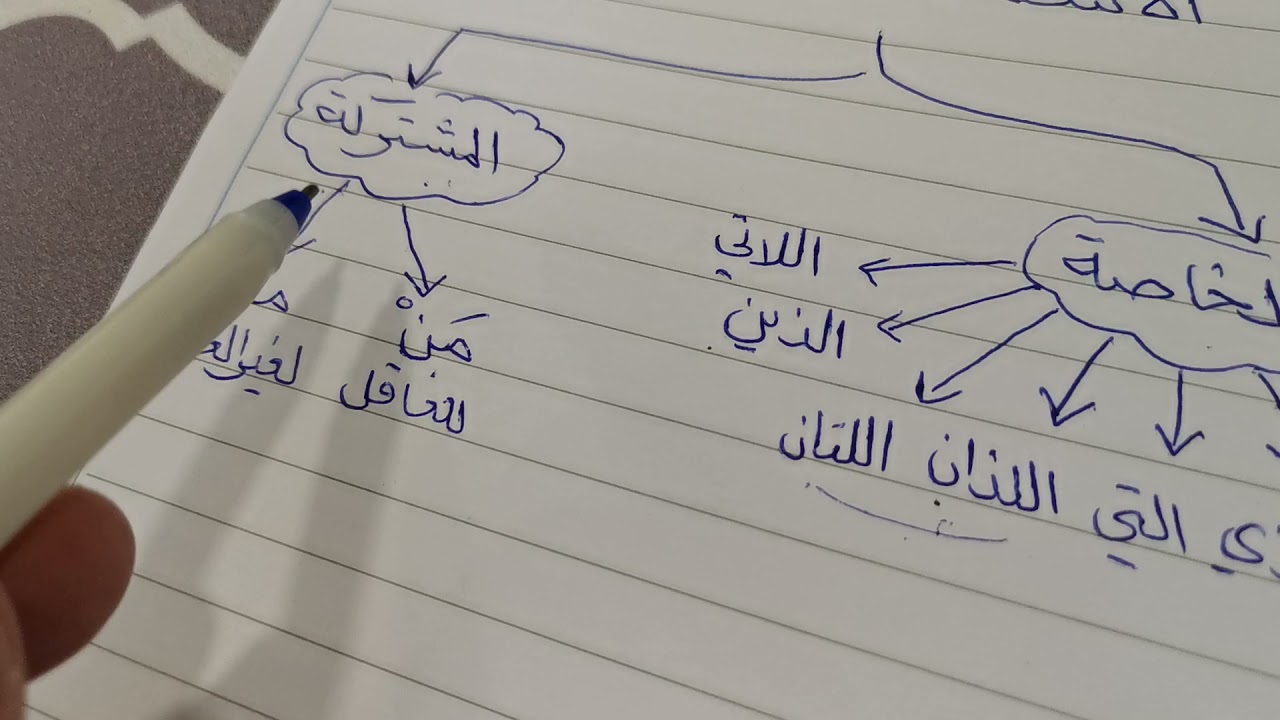 المشتركة
الخاصة
اللاتي
الذين
مَنْ
للعاقل لغير
التي اللذان اللتان